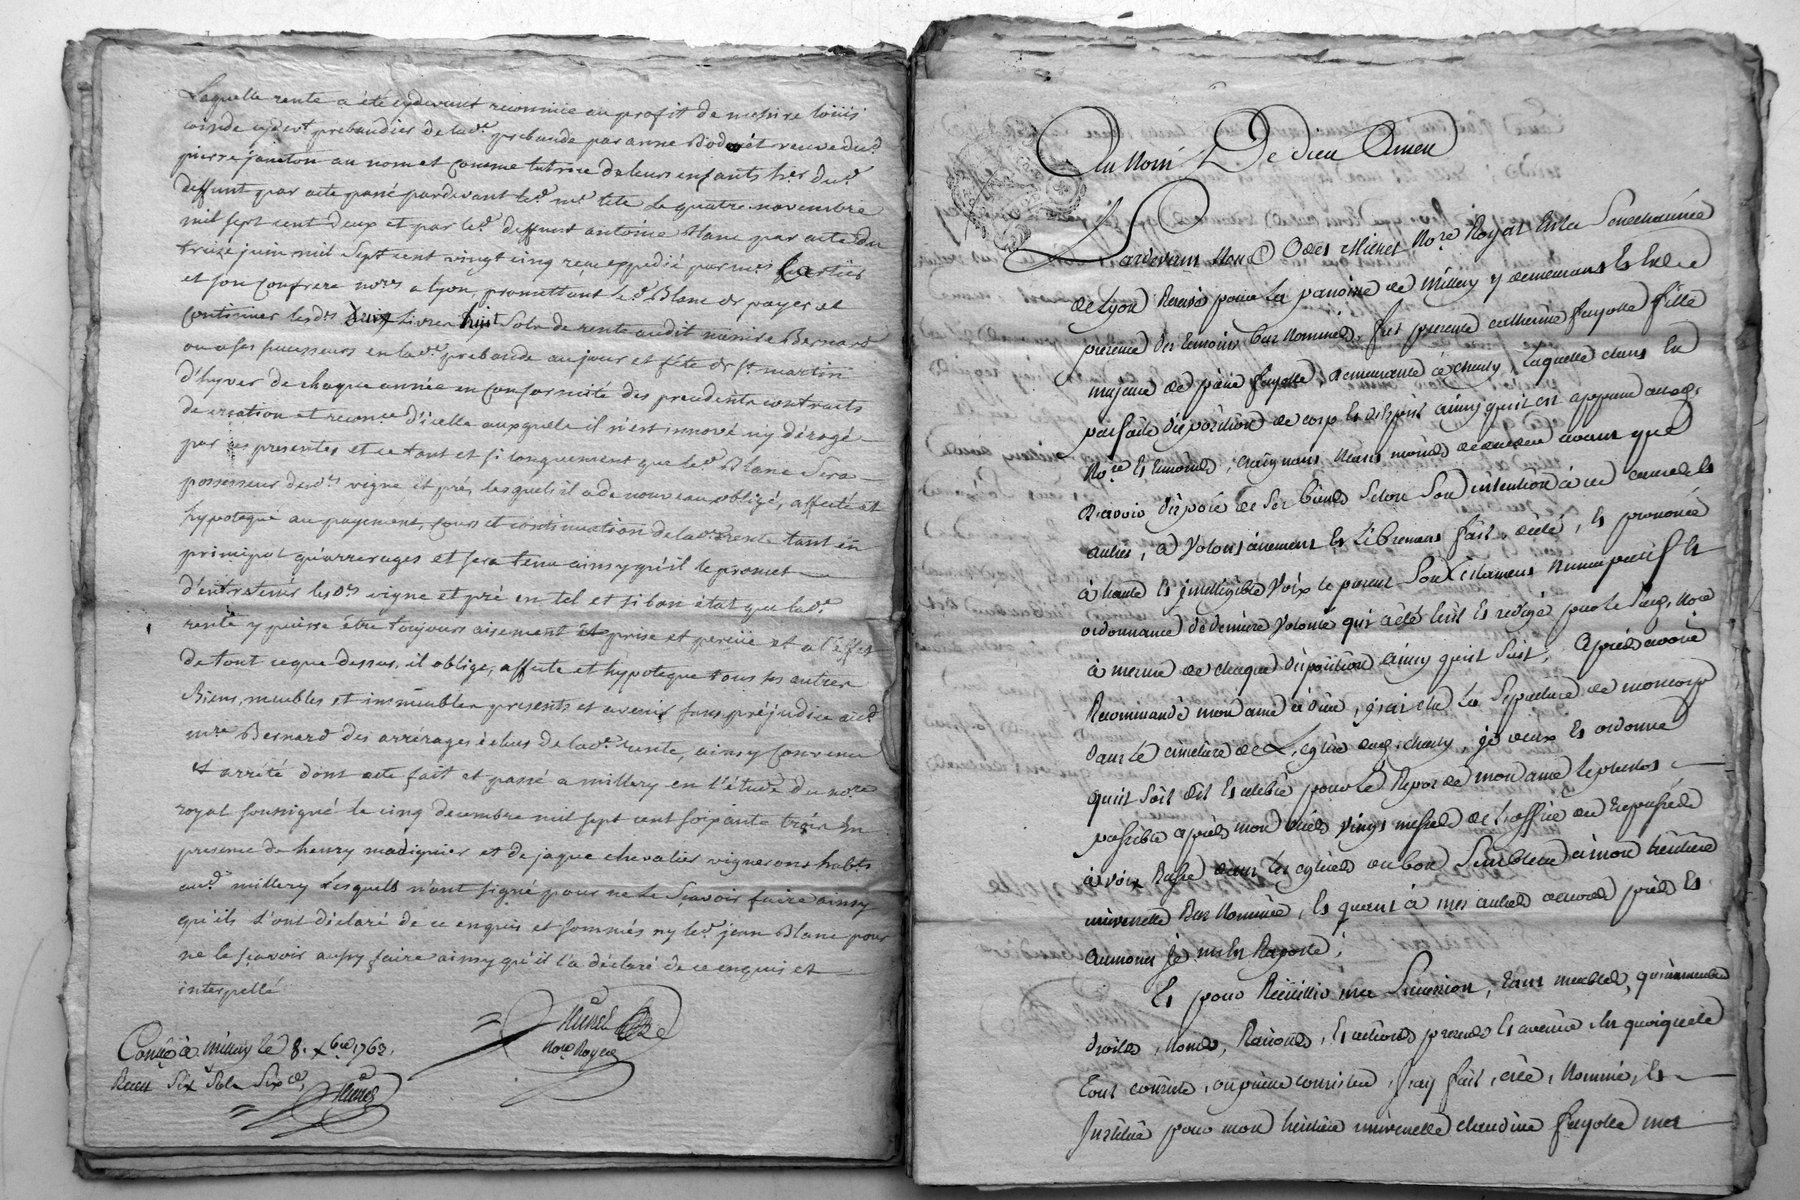 Laquelle rente a été cydevant reconnüe au profit de messire loüis
cydevt. prebandier de lade. prebande par anne veuve dud.
pierre janeton au nom et comme tutrice de leurs enfants hers. dud.
deffunt par acte passé pardevant led. me. tete le quatre novembre
mil sept cent deux et par led. deffunt antoine Blanc par acte du
treize juin mil Sept cent vingt cinq reçu expedié par mes.
et son confrere nores a lyon, promettant led. Blanc de payer et
continuer lesdes. Livres huit Sols de rente audit messire Bernard
ou a ses successeurs en lade. prebande au jour et fête de st. martin
d'hyver de chaque année en conformité des precedents contraits
de creation et reconce. d'icelle auxquels il n'est innové ny dérogé
par ces presentes et ce tant et si longuement que led. Blanc Sera
possesseur desdes. vigne et pré, lesquels il a de nouveau obligé, affecté et
hypotequé au payement, cours et continuation de lade. rente tant en
principal qu'arrerages et sera tenu ainsy qu'il le promet
d'entretenir lesdes. vigne et pré en tel et si bon état que lade.
rente y puisse être toujours aisement et prise et perçüe et a l'effet
de tout ce que dessus, il oblige, affecte et hypoteque tous ses autres
Biens, meubles et immeubles presents et avenir sans préjudice aud.
mre. Bernard des arrérages échus de lade. rente, ainsy convenu
et arrété dont acte fait et passé a millery en l'étude du nore.
royal soussigné le cinq decembre mil sept cent soixante trois en
presence de henry madignier et de jaque chevalier vignerons habts.
aud. millery Lesquels n'ont signé pour ne le Scavoir faire ainsy
qu'ils l'ont déclaré de ce enquis et sommés ny led. jean Blanc pour
ne le sçavoir aussy faire ainsy qu'il l'a déclaré de ce enquis et
interpellé
Nore Royal
Conllé à millery le 8. xbre 1763.
Receu Six Sols Six d.
Au Nom De dieu Amen
Pardevant Nous Nore. Royal En la Senechaussée
de Lyon Reservé pour La paroisse de Millery y demeurant Et En la
presence des temoins bas Nommés, fut presente catherine fayolle fille
majeure de fayolle demeurante à charly, Laquelle dans La
parfaite disposition de corp Et desprit ainsy quil est apparu auxds.
Nore. Et temoins, craignant mais moins de deceder avant que
D'avoir disposé de Ses biens Selon Son intention à ces causes Et
autres, à Volontairement Et Librement fait, dicté, Et prononcé
à haute Et jntelligible Voix le present Son testament Nuncupatif Et
ordonnance de derniere Volonté qui à été Ecrit Et redigé par le Susd. Nore
à mesure de chaque disposition ainsy quil Suit, Après avoir
Recommandé mon ame à dieu, j'ai elu La Sepulture de mon corp
dans le cimetière de L'eglise dud. charly, je veux Et ordonne
quil Soit dit Et celebré pour Le Repos de mon ame le plustos
possible après mon decès Vingt messes de L'office des trepassés
à voix Basse dans les eglises où bon Semblera à mon héritière
universelle Bas Nommée, Et quant à mes autres oeuvres pies Et
aumones Je m'en Raporte;
Et pour Recüillir ma Succession, tans meubles, qu'immeubles
droits, Noms, Raisons, Et actions presents Et avenir En quoiquelle
Tout consiste, ou puisse consister, J'ay fait, créé, Nommé, Et
Jnstitüe pour mon heritiere universelle claudine fayolle mes